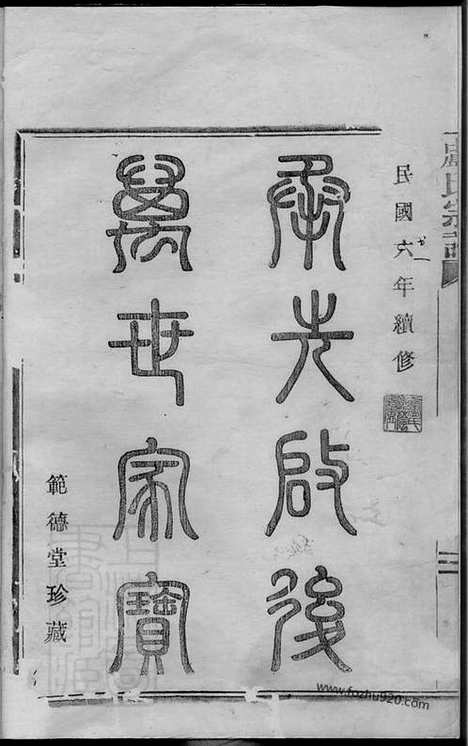 盧氏宗譜
民國六年續修
承先啟後
萬世家寶
範德堂珍藏
www.fozhu920.com